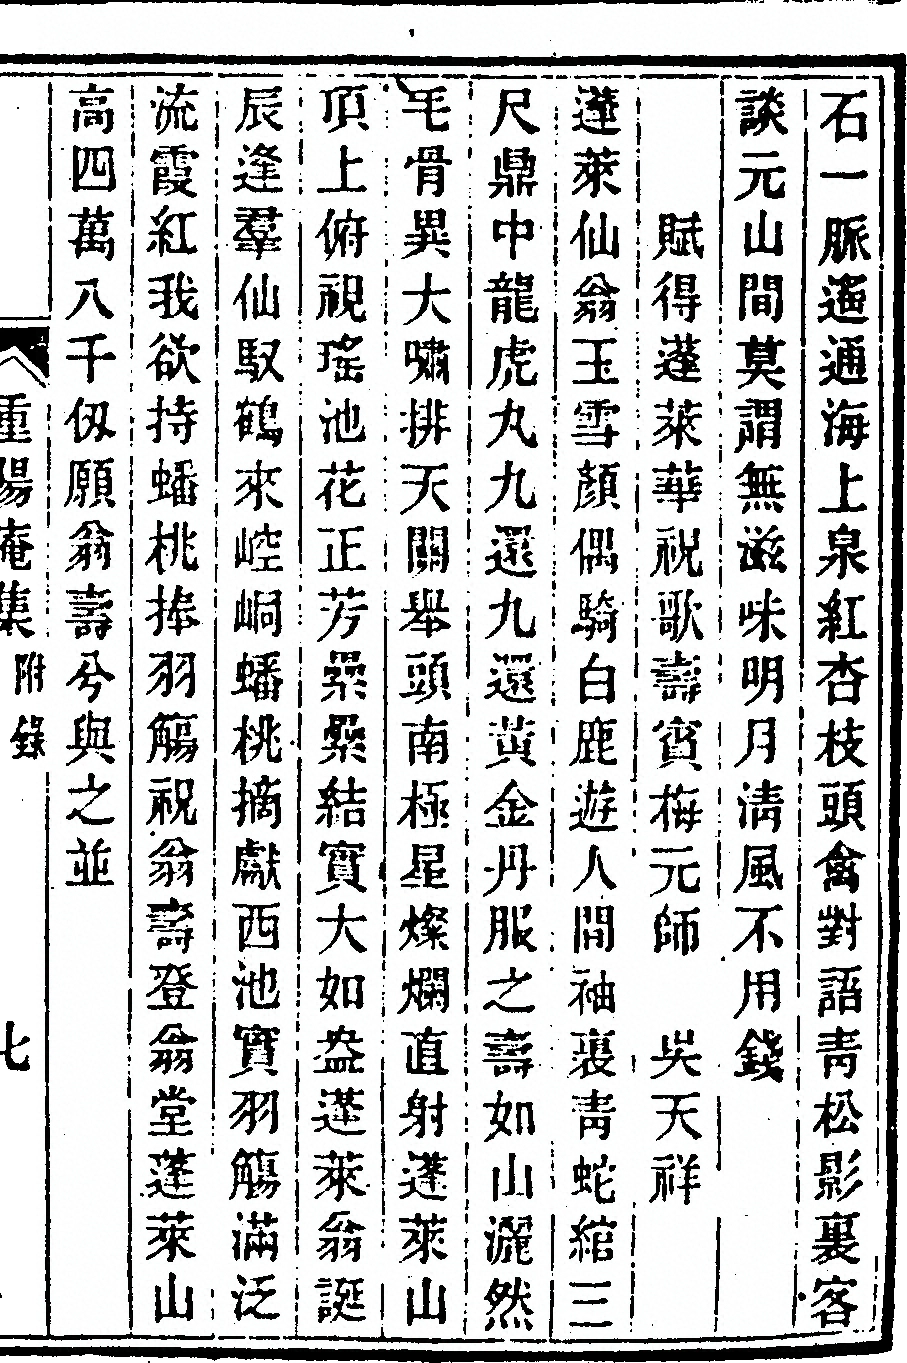 石一脈遙通海上泉紅杏枝頭禽對語青松影裏客
談元山間莫謂無滋味明月清風不用錢
賦得蓬萊華祝歌壽賓梅元師　吳天祥
蓬萊仙翁玉雪顏偶騎白鹿遊人間袖裏青蛇綰三
尺鼎中龍虎丸九還九還黃金丹服之壽如山灑然
毛骨異大嘯排天關舉頭南極星燦爛直射蓬萊山
頂上俯視瑤池花正芳纍纍結實大如盎蓬萊翁誕
辰逢羣仙馭鶴來崆峒蟠桃摘獻西池實羽觴滿泛
流霞紅我欲持蟠桃捧羽觴祝翁壽登翁堂蓬萊山
高四萬八千仭願翁壽兮與之並
重陽庵集　附錄　七